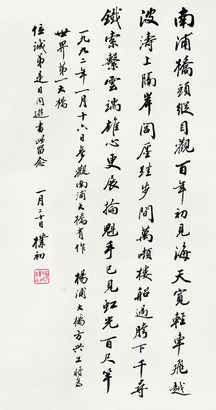 南浦橋頭縱目觀百年初見海天寬輕車飛越
波濤上隔岸同歷跬步間萬頃樓船過胯下千尋
鐵索繫雲端雄心更展掄魁手已見虹光百尺竿
一九九二年一月十六日參觀南浦大橋有作 楊浦大橋方興工將爲
世界第一大橋
任誠弟是日同遊書以留念
一月二十日 樸初